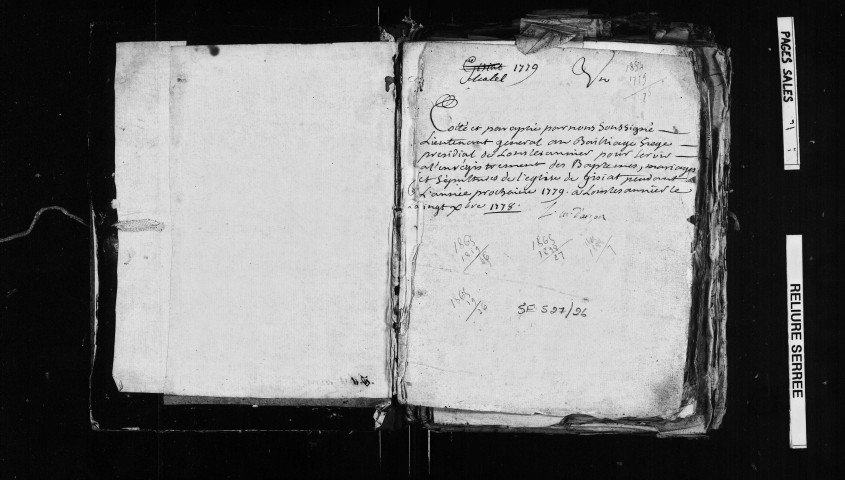 Gisiat 1779
1779
Cotté et paraphé par nous Soussigné
Lieutenant general au Bailliage Siege
presidial de Lonslesaunier pour servir
a l'enregistrement des Baptemes, mariages
et Sepultures de l'eglise de Gisiat pendant
L'année prochaine 1779. a Lonslesaunier le
vingt xbre 1778.
1865
1865
1865
5E 527/26
PAGES SALES
RELIURE SERREE